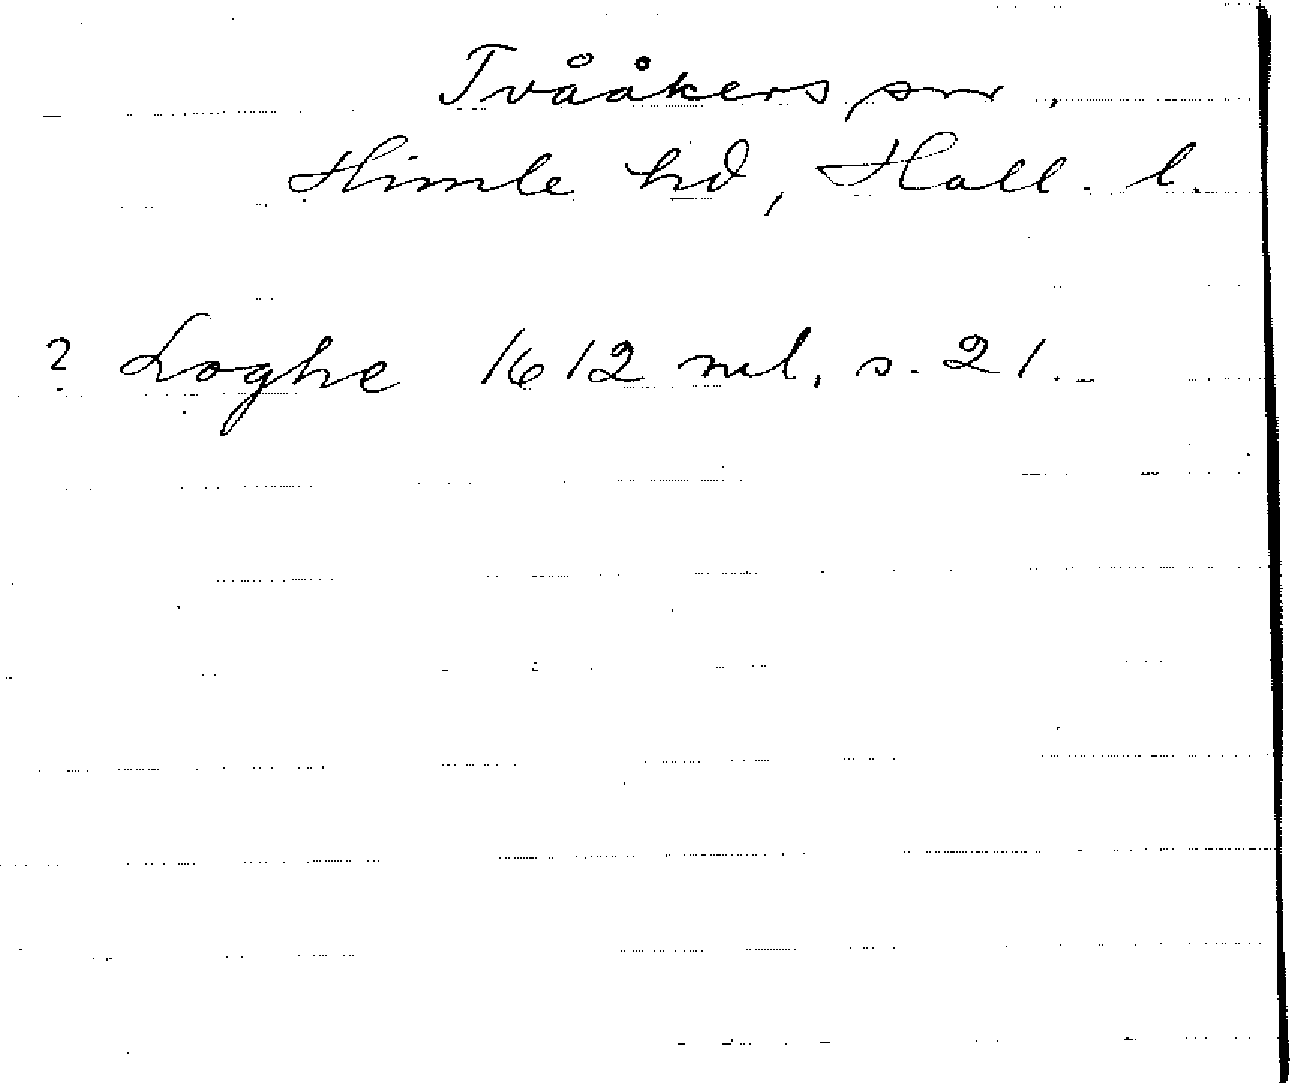 Tvååkers sn,
Himle hd, Hall. l.
? Loghe 1612 ml. s. 21.